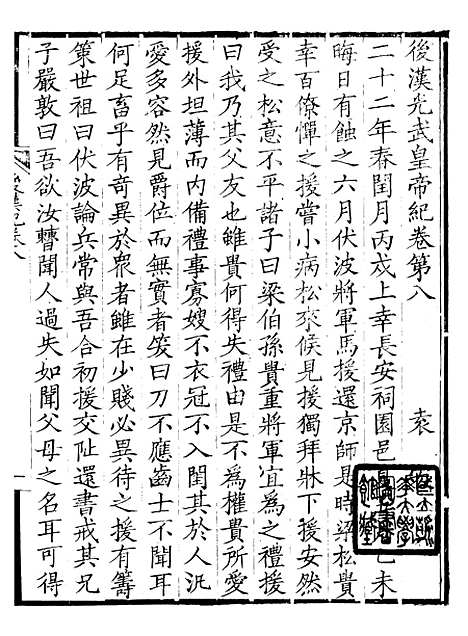 後漢光武皇帝紀卷第八 袁
二十二年春閏月丙戌上幸長安祠園邑 乙未
晦日有蝕之六月伏波將軍馬援還京師是時梁松貴
幸百僚憚之援嘗小病松來候見援獨拜牀下援安然
受之松意不平諸子曰梁伯孫貴重將軍宜為之禮援
曰我乃其父友也雖貴何得失禮由是不為權貴所愛
援外坦薄而内備禮事寡嫂不衣冠不入閨其於人汎
愛多容然見爵位而無實者笑曰刀不應齒士不聞耳
何足畜乎有奇異於衆者雖在少賤必異待之援有籌
策世祖曰伏波論兵常與吾合初援交阯還書戒其兄
子嚴敦曰吾欲汝曹聞人過失如聞父母之名耳可得
後漢紀卷八
一